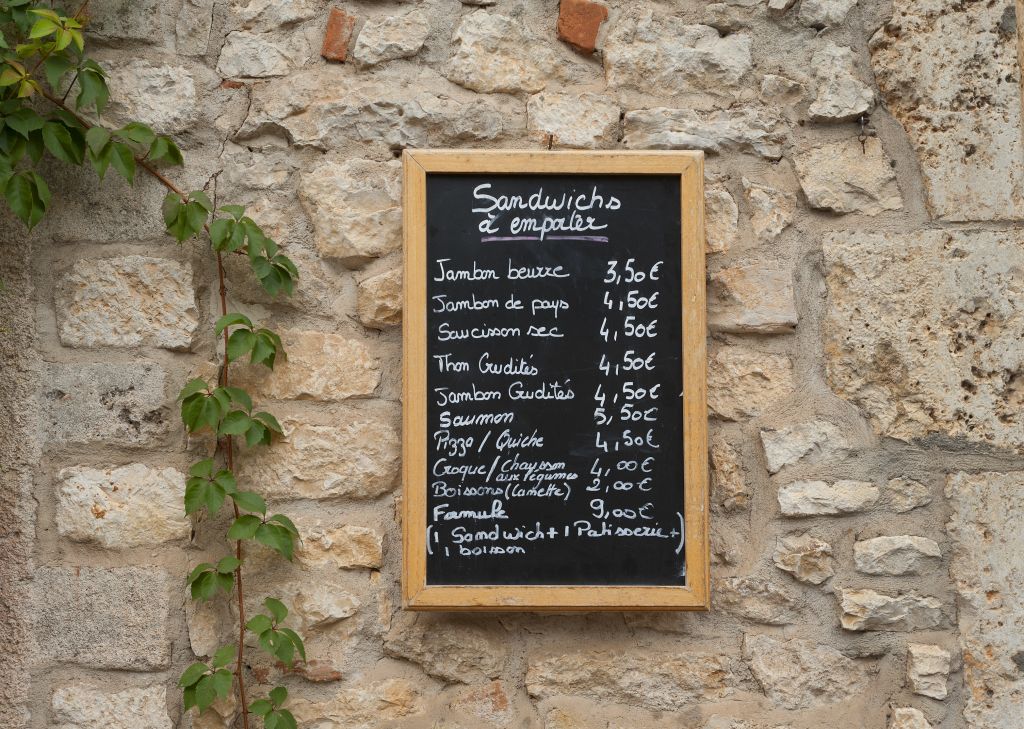 Sandwichs
à empatèr
Jambon beurre 3,50€
Jambon de pays 4,50€
Saucisson sec 4,50€
Thon Crudités 4,50€
Jambon Crudités 4,50€
Saumon 5,50€
Pizza / Quiche 4,50€
Croque / Chausson aux légumes 4,00€
Boissons (Canette) 2,00€
Formule 9,00€
(1 Sandwich + 1 Patisserie +
1 boisson)